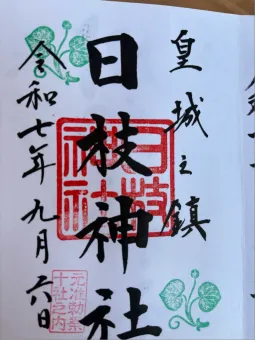 皇城之鎮
日枝神社
日枝
神社
令和七年九月六日
元准勅祭
十社之内